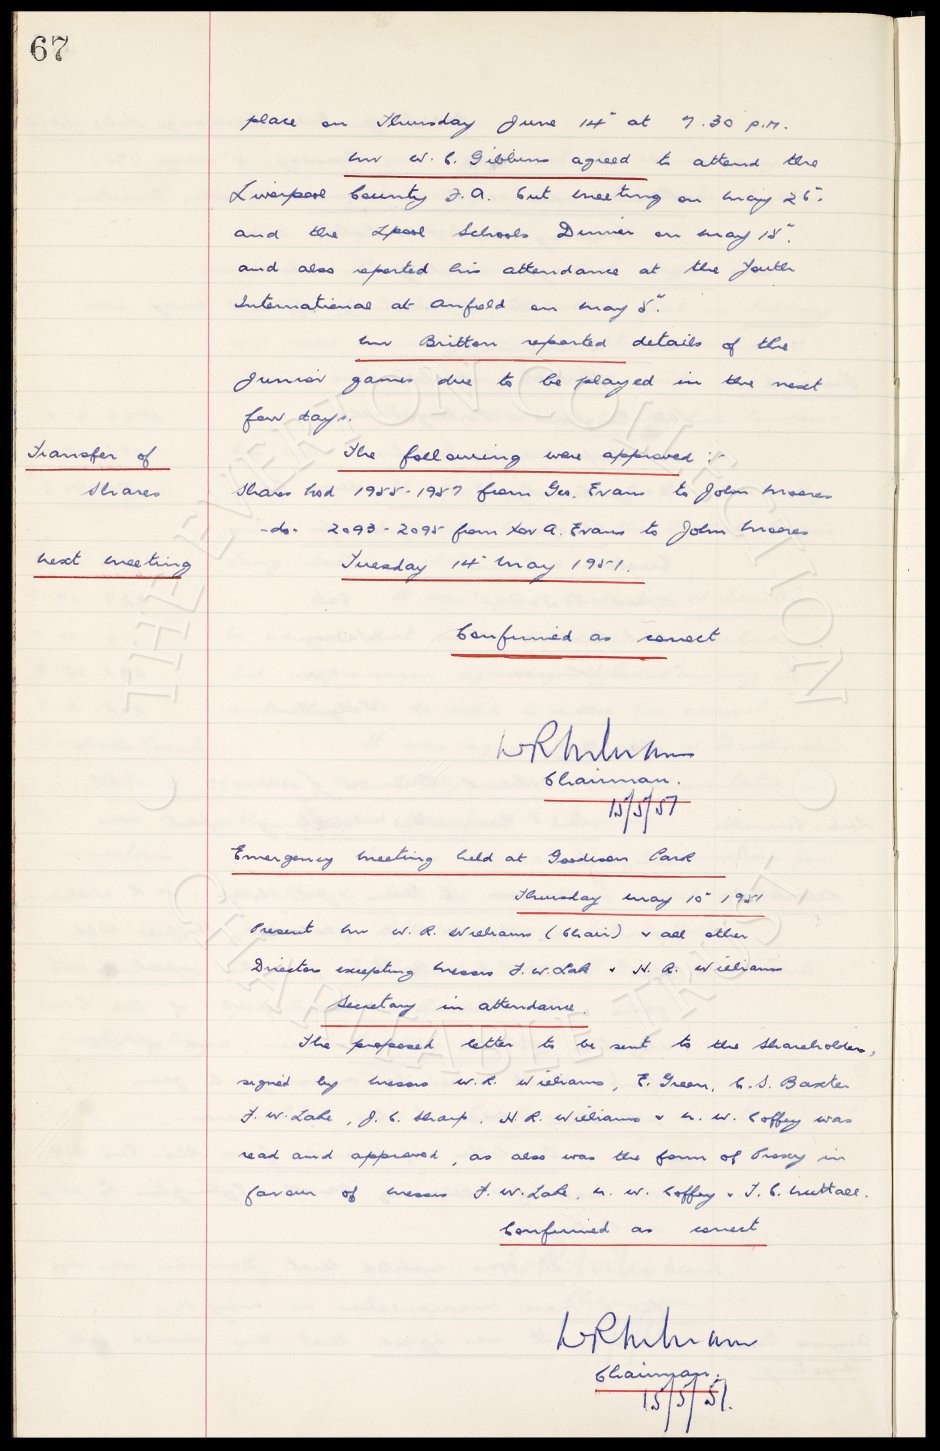 67
place on Thursday June 14" at 7.30 p.m.
Mr W. C. Gibbins agreed to attend the
Liverpool County F.A. Cut meeting on May 26".
and the Lpool Schools Dinner on May 15".
and also reported his attendance at the Youth
International at Anfield on May 5".
Mr Britton reported details of the
Junior games due to be played in the next
few days.
Transfer of The following were approved :-
Shares Shares Nod 1955-1957 from Geo. Evans to John Moores
-do- 2093-2095 from A. Evans to John Moores
Next meeting Tuesday 14" May 1951.
Confirmed as correct
W R Williams
Chairman.
15/5/51
Emergency meeting held at Goodison Park
Thursday May 10" 1951
Present Mr W. R. Williams (Chair) & all other
Directors excepting Messrs F. W. Lake & H. R. Williams
Secretary in attendance.
The proposed letter to be sent to the Shareholders,
signed by Messrs W. R. Williams, E. Green, C. S. Baxter
F. W. Lake, J. C. Sharp, H. R. Williams & N. W. Coffey was
read and approved, as also was the form of Proxy in
favour of Messrs F. W. Lake, N. W. Coffey & T. C. Nuttall.
Confirmed as correct
W R Williams
Chairman.
15/5/51.
THE EVERTON COLLECTION
CHARITABLE TRUST